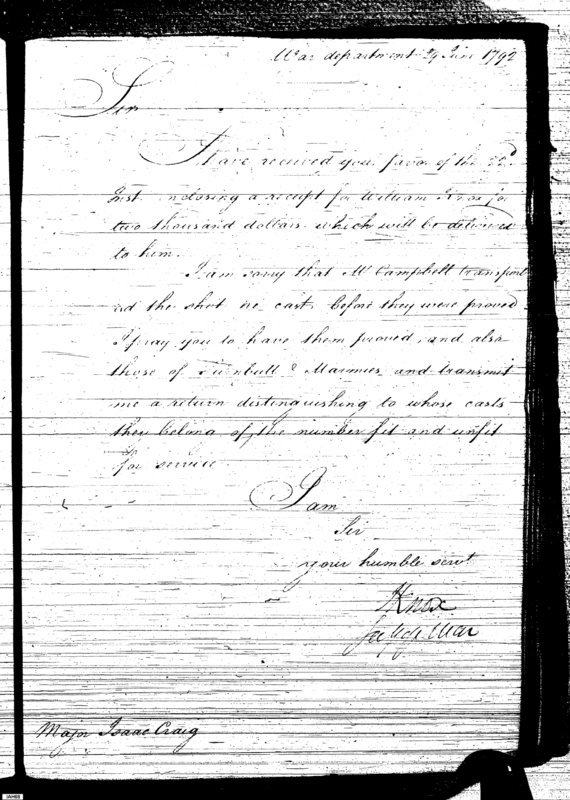 War department 29 June 1792
Sir
I have received your favor of the 22d
Inst. inclosing a receipt for William Knox for
two thousand dollars, which will be delivered
to him.
I am sorry that Mr Campbell transport
ed the shot he cast, before they were proved
I pray you to have them proved, and also
those of Turnbull & Marmies and transmit
me a return distinguishing to whose casts
they belong of the number fit and unfit
for service
I am
Sir
your humble servt
HKnox
Secy of War
Major Isaac Craig